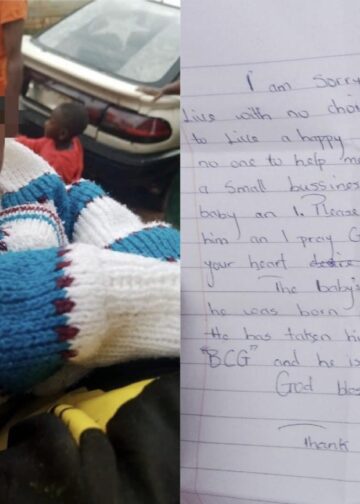 I am Sorry
Live with no choi
to Live a happy
no one to help me
a Small bussines
baby an I. Please
him an I pray G
your heart desire
The baby's
he was born
He has taken hi
"BCG" and he is
God bles
Thank